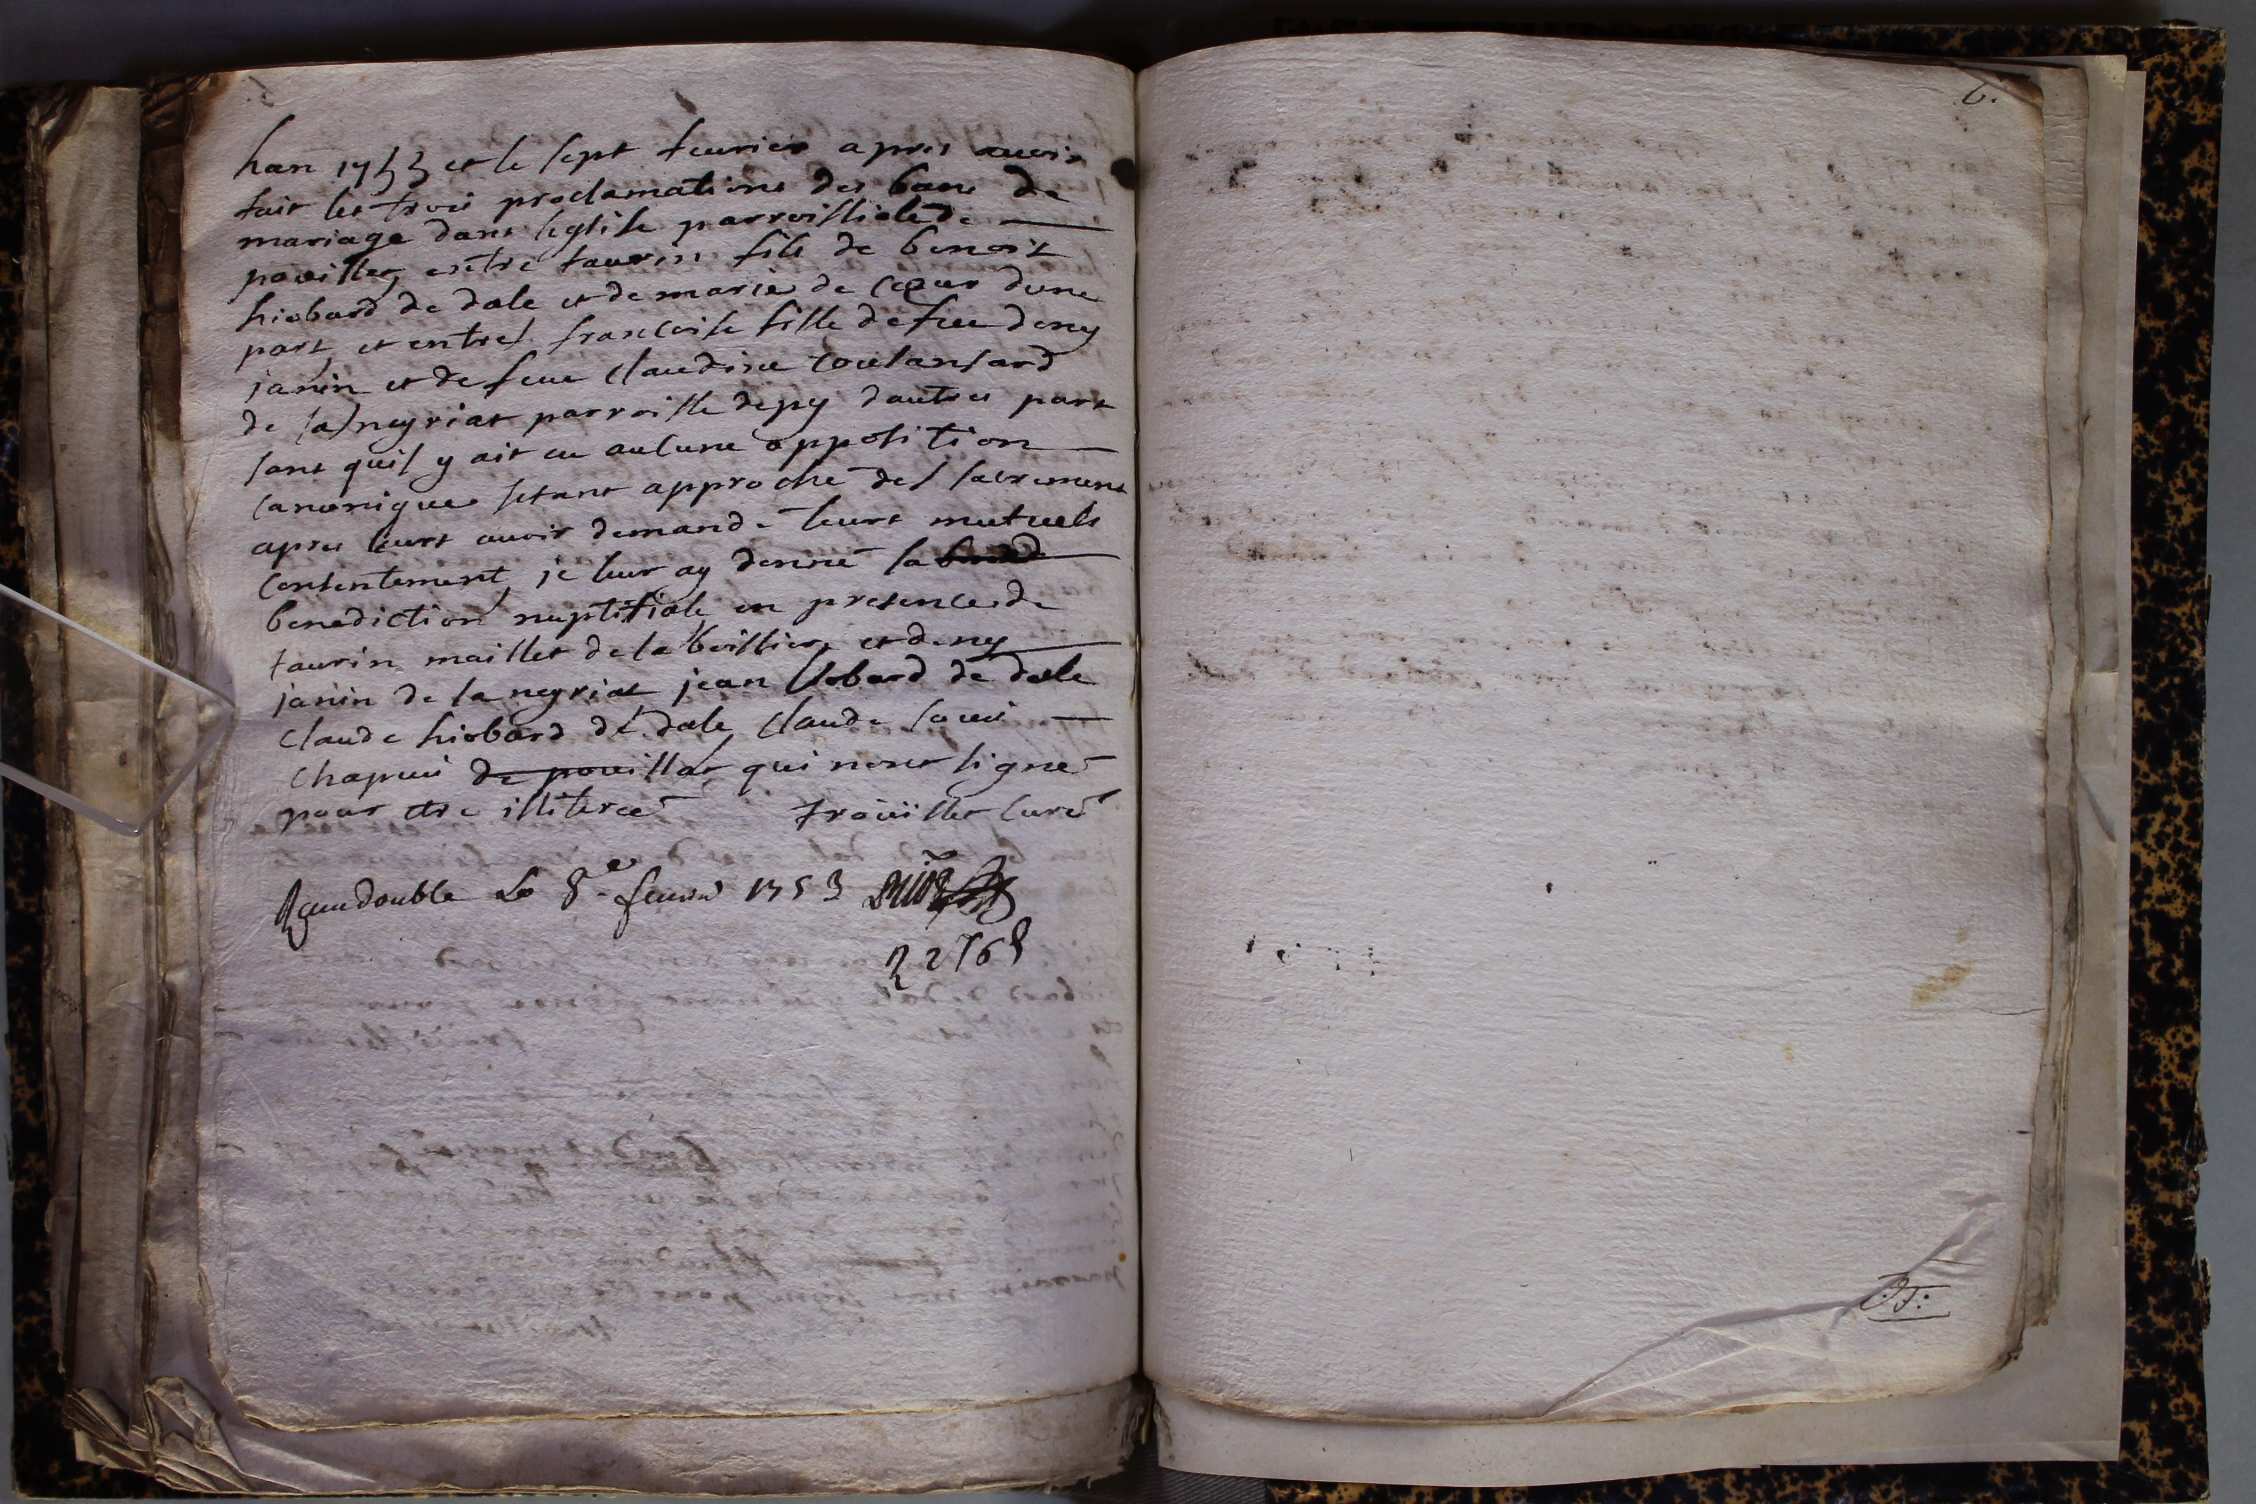 5.
lan 1753 et le sept feurier apres auoir
fait les trois proclamations des bans de
mariage dans leglise parroissiale de
pouillat, entre taurin fils de benoit
hiobard de dale et de marie de coeur dune
part, et entre francoise fille de feu deny
janin et de feue claudine
de la neyriat parroisse depy dautres part
sans quil y ait eu aucune opposition
canonique setant approché des sacrement
apres leurs auoir demandé leurs mutuels
consentement, je leur ay donné la
benediction nuptitiale en presence de
taurin maillet de la et deny
janin de la neyriat jean hobard de dale
claude hiobard de dale, claude louis
chapuis de pouillat, qui nont signé
pour etre illiteree troüillet curé
Receu double le 8e feurier 1753
6.